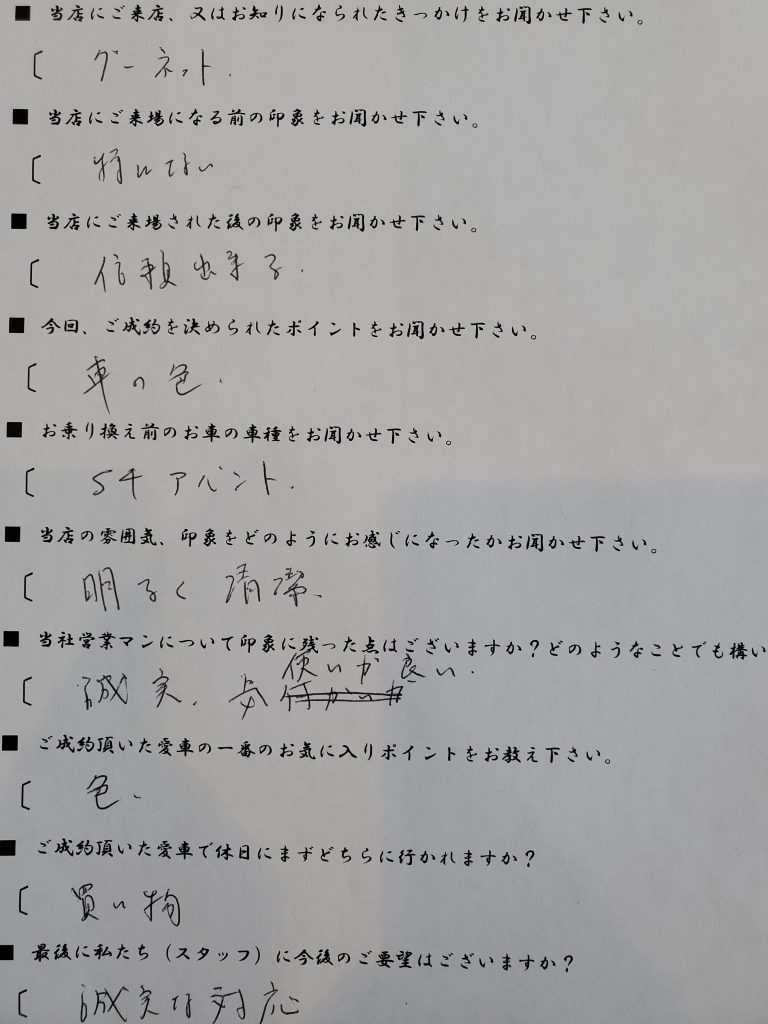 ■ 当店にご来店、又はお知りになられたきっかけをお聞かせ下さい。
〔 グーネット.
■ 当店にご来場になる前の印象をお聞かせ下さい。
〔 特にない
■ 当店にご来場された後の印象をお聞かせ下さい。
〔 信頼出来る.
■ 今回、ご成約を決められたポイントをお聞かせ下さい。
〔 車の色.
■ お乗り換え前のお車の車種をお聞かせ下さい。
〔 S4 アバント.
■ 当店の雰囲気、印象をどのようにお感じになったかお聞かせ下さい。
〔 明るく清潔.
■ 当社営業マンについて印象に残った点はございますか？どのようなことでも構い
使いが良い.
〔 誠実.
■ ご成約頂いた愛車の一番のお気に入りポイントをお教え下さい。
〔 色.
■ ご成約頂いた愛車で休日にまずどちらに行かれますか？
〔 買い物
■ 最後に私たち（スタッフ）に今後のご要望はございますか？
〔 誠実な対応